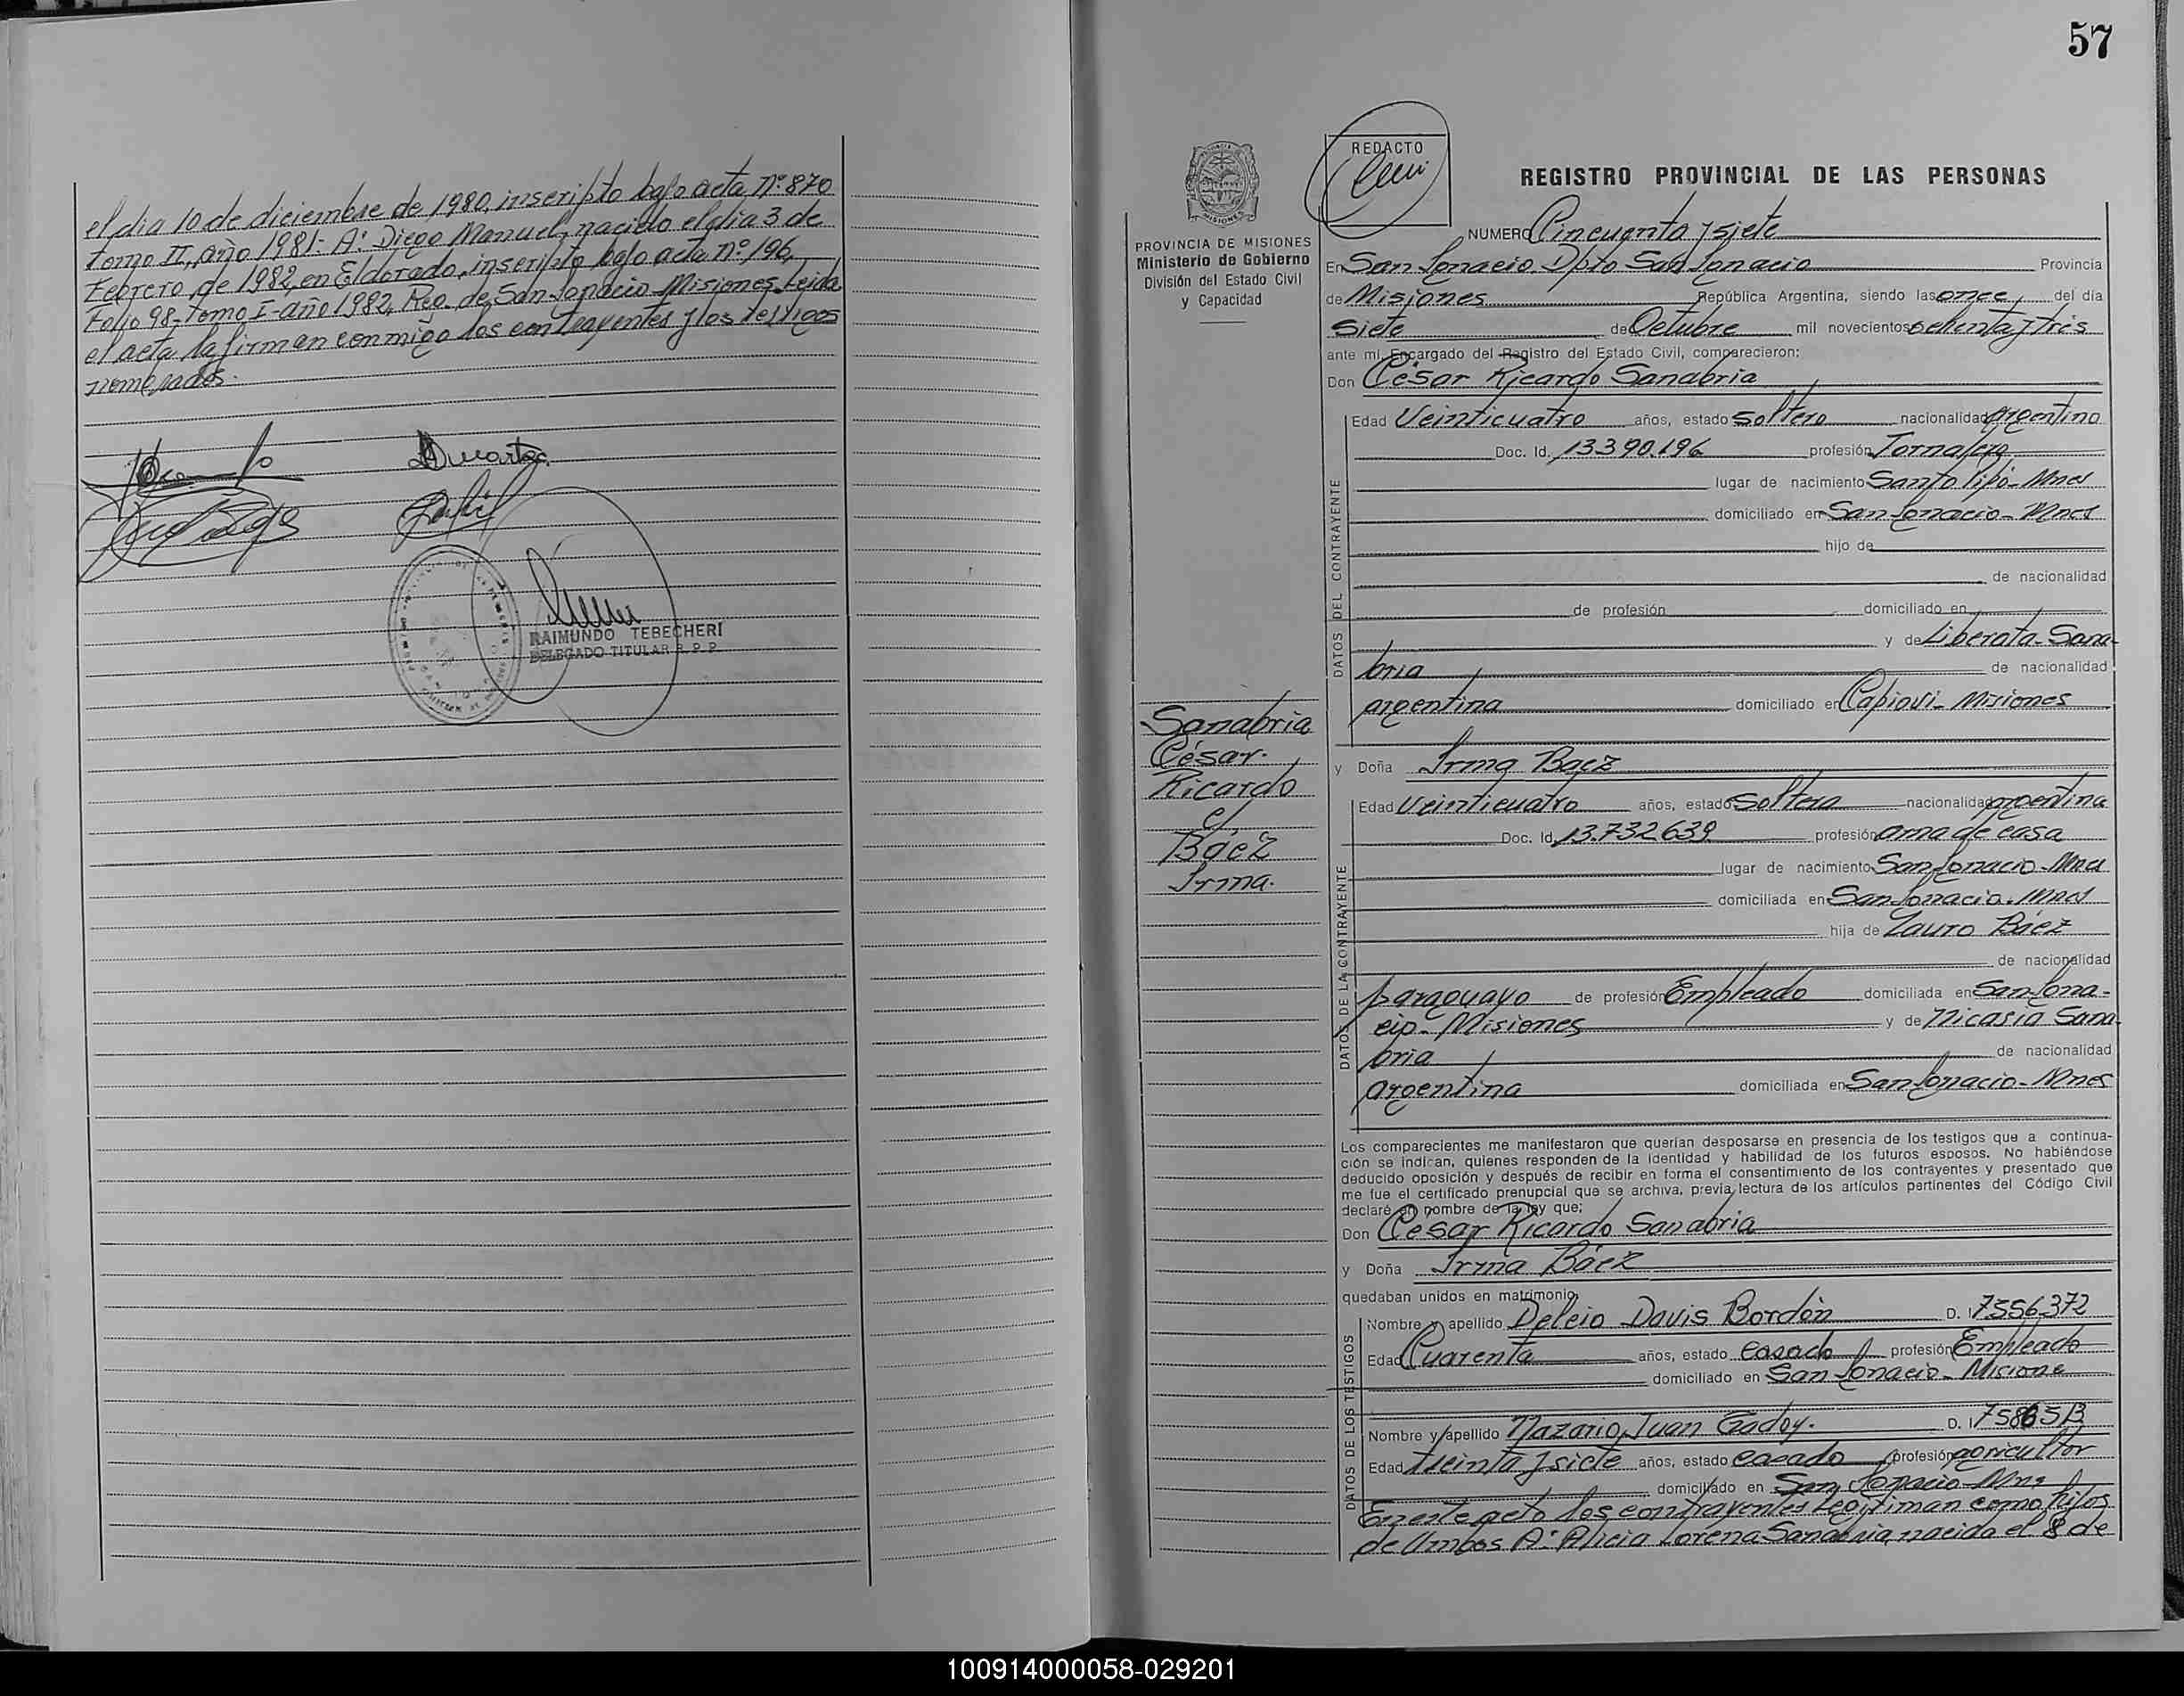 el dia 10 de diciembre de 1980, inscripto bajo acta nº 870
tomo II, año 1981- A: Diego Manuel, nacido el dia 3 de
Febrero de 1982, en Eldorado, inscripto bajo acta nº 196,
Folio 98- Tomo I- año 1982, Reg. de San Ignacio Misiones. Leida
el acta la firman conmigo los contrayentes y los testigos
nombrados.-
Duarte
RAIMUNDO TEBECHERI
DELEGADO TITULAR R. P. P.
57
PROVINCIA DE MISIONES
Ministerio de Gobierno
División del Estado Civil
y Capacidad
Sanabria
César
Ricardo
c/
Báez
Irma.
REDACTO
REGISTRO PROVINCIAL DE LAS PERSONAS
NUMERO Cincuenta y siete
En San Ignacio Dpto San Ignacio Provincia
de Misiones República Argentina, siendo las once del día
Siete de Octubre mil novecientos ochenta y tres
ante mi, Encargado del Registro del Estado Civil, comparecieron:
Don César Ricardo Sanabria
DATOS DEL CONTRAYENTE
Edad Veinticuatro años, estado soltero nacionalidad argentino
Doc. Id. 13.390.196 profesión Jornalero
lugar de nacimiento Santo Pipó- Mnes
domiciliado en San Ignacio- Mnes
hijo de
de nacionalidad
de profesión domiciliado en
y de Liberata- Sana-
bria de nacionalidad
argentina domiciliado en Capiovi- Misiones
y Doña Irma Baez
DATOS DE LA CONTRAYENTE
Edad Veinticuatro años, estado Soltera nacionalidad argentina
Doc. Id. 13.732.639 profesión ama de casa
lugar de nacimiento San Ignacio- Mnes
domiciliada en San Ignacio- Mnes
hija de Lauro Báez
de nacionalidad
paraguayo de profesión Empleado domiciliada en San Igna-
cio- Misiones y de Nicasia Sana-
bria de nacionalidad
argentina domiciliada en San Ignacio- Mnes
Los comparecientes me manifestaron que querían desposarse en presencia de los testigos que a continua-
ción se indican, quienes responden de la identidad y habilidad de los futuros esposos. No habiéndose
deducido oposición y después de recibir en forma el consentimiento de los contrayentes y presentado que
me fue el certificado prenupcial que se archiva, previa lectura de los artículos pertinentes del Código Civil
declaré en nombre de la ley que:
Don César Ricardo Sanabria
y Doña Irma Báez
quedaban unidos en matrimonio.
DATOS DE LOS TESTIGOS
Nombre y apellido Delcio Davis Bordón D. I 7556372
Edad Cuarenta años, estado casado profesión Empleado
domiciliado en San Ignacio- Misione
Nombre y apellido Nazario Juan Godoy. D. I
Edad treinta y siete años, estado casado profesión agricultor
domiciliado en San Ignacio- Mns
En este acto los contrayentes Legitiman como hijos
de Ambos A: Alicia Lorena Sanabria, nacida el 8 de
100914000058-029201